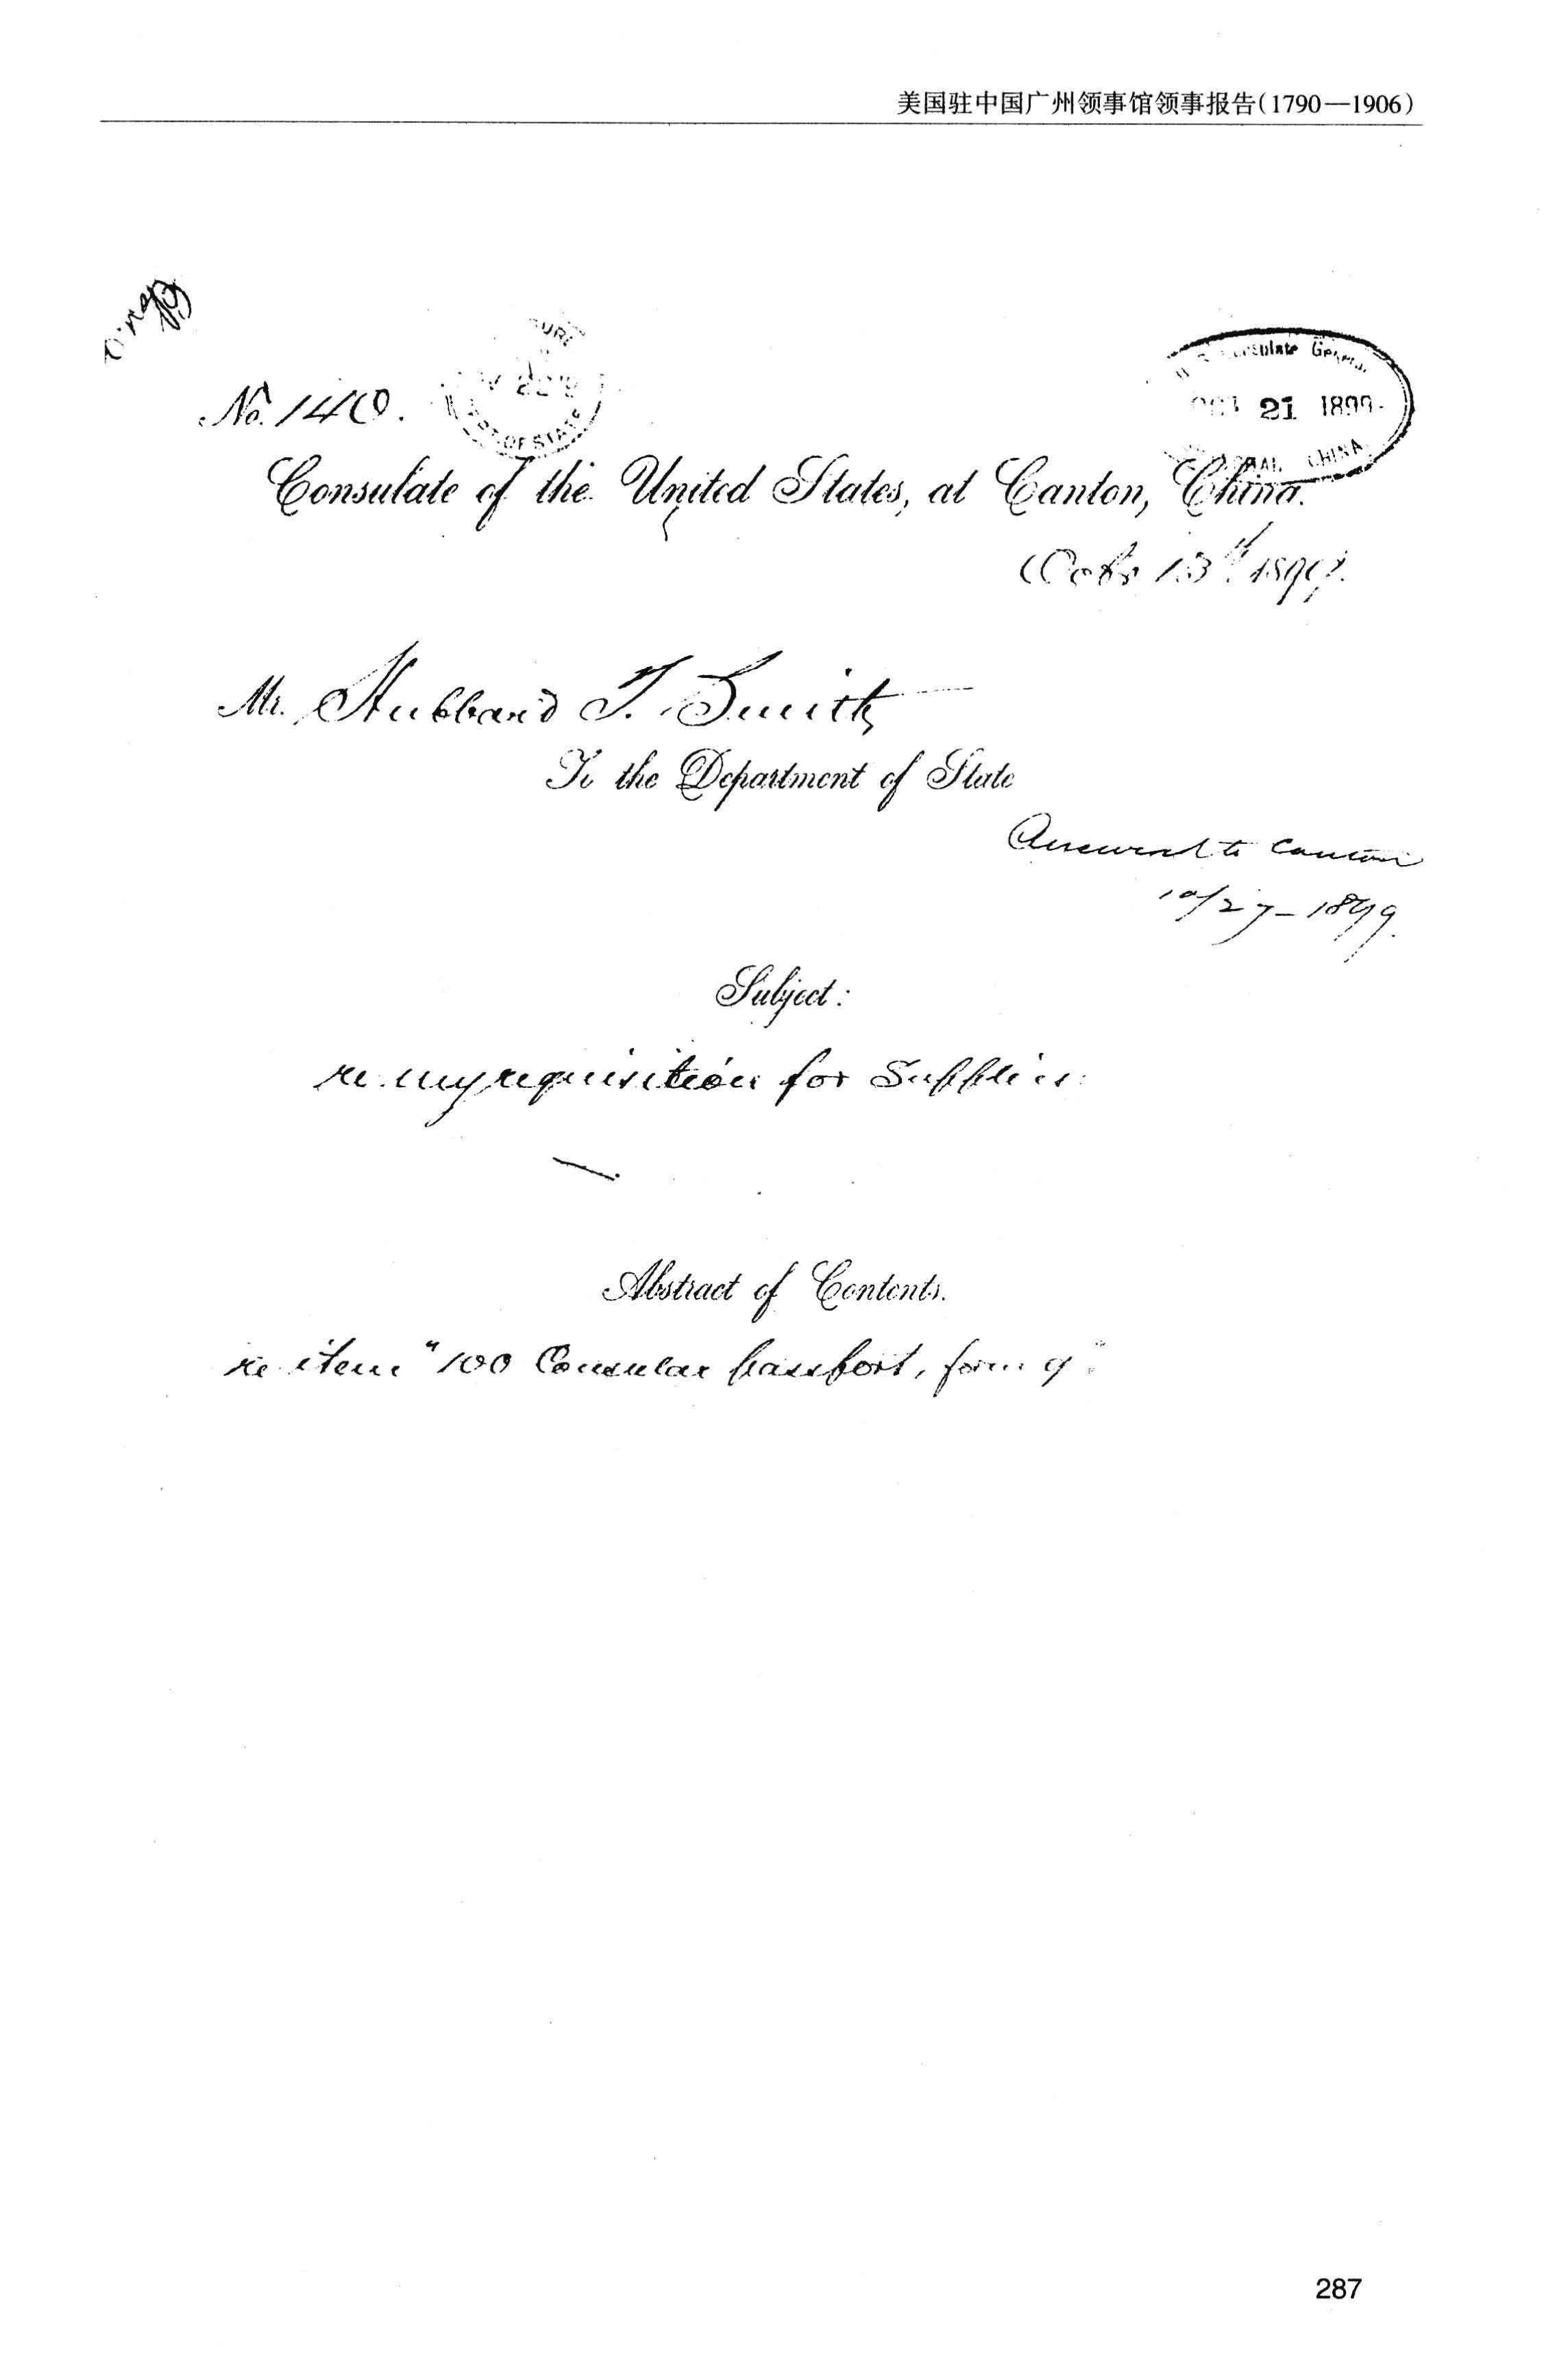 美国驻中国广州领事馆领事报告(1790—1906)
No. 140.
OF STATE
Consulate General
OCT 21 1899.
CHINA
Consulate of the United States, at Canton, China.
Octr 13th 1899.
Mr. Hubbard T. Smith
To the Department of State
Answered to Canton
10/27-1899.
Subject:
re my requisition for Supplies.
Abstract of Contents.
re item "100 Consular passport, form 9"
287